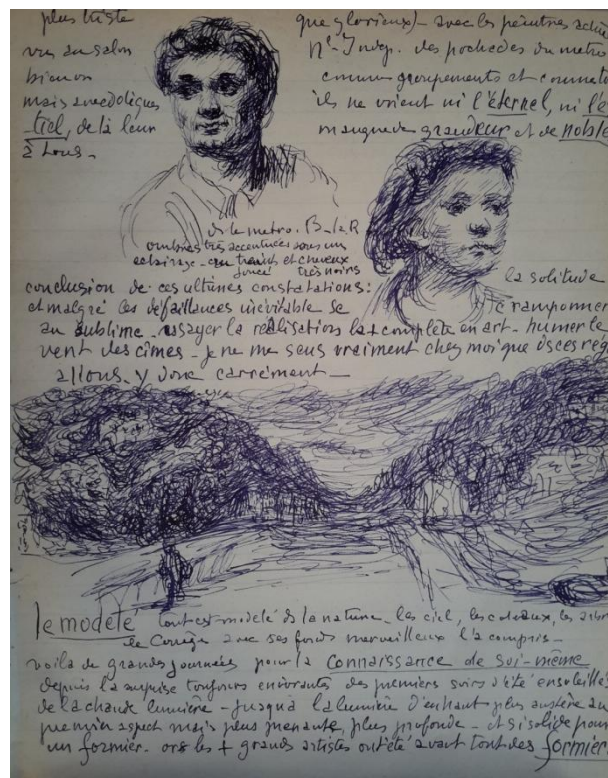 plus triste
que glorieux) - avec les peintres
vus au salon
des pochades du metro
bien on
comme groupements et
mais anecdotiques
ils ne voient ni l'éternel, ni
-tiel, de là leur
manque de grandeur et de
à tous -
ds le metro. B_la R
ombres très accentuées sous un
eclairage - traits et cheveux
foncé très noirs
conclusion de ces ultimes constatations:
la solitude
et malgré les défaillances inévitable se
cramponner
au sublime - essayer la réalisation la + complète en art - humer le
vent des cîmes - je ne me sens vraiment chez moi que ds ces
allons-y donc carrément -
le modelé tout est modelé ds la nature - les ciel, les coteaux, les
le Corrège avec ses fonds merveilleux l'a compris -
voilà de grandes journées pour la connaissance de soi-même
depuis la surprise toujours enivrante des premiers soirs d'été ensoleillés
de la chaude lumière - jusqu'à la lumière d'en haut plus austère au
premier aspect mais plus prenante, plus profonde - et si solide pour
un formier - ors les + grands artistes ont été avant tout des formier